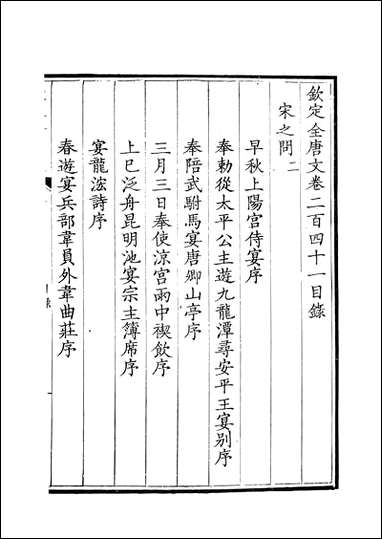 欽定全唐文卷二百四十一目錄
宋之問二
早秋上陽宮侍宴序
奉勅從太平公主遊九龍潭尋安平王宴別序
奉陪武駙馬宴唐卿山亭序
三月三日奉使涼宮雨中禊飲序
上巳泛舟昆明池宴宗主簿席序
宴龍泓詩序
春遊宴兵部韋員外韋曲莊序